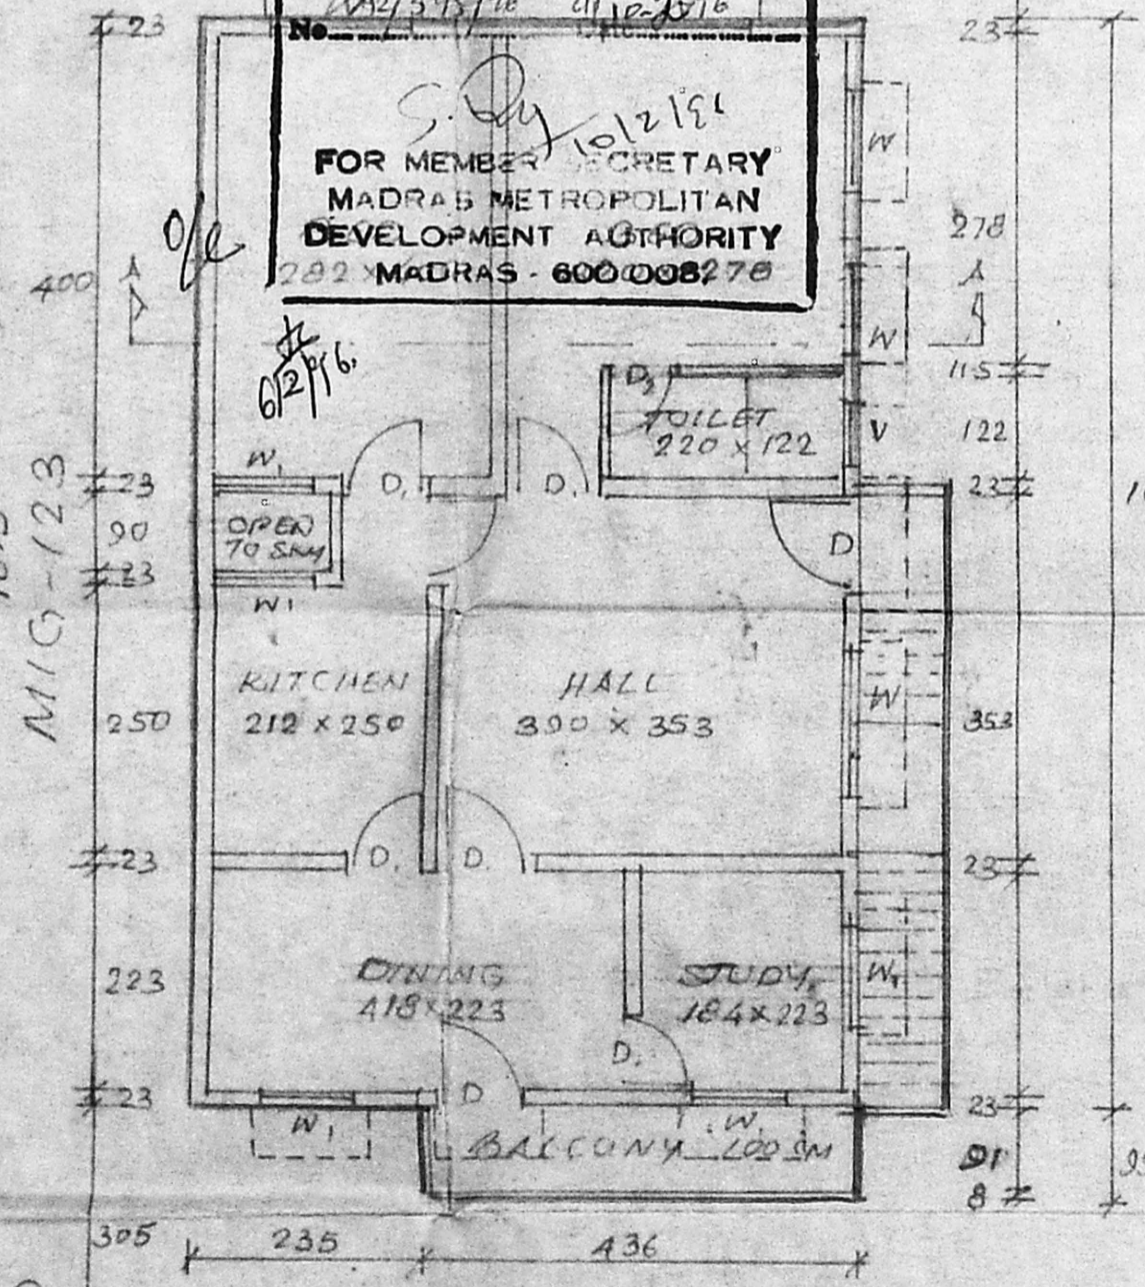 No.
S. Ry 10/2/96
FOR MEMBER SECRETARY
MADRAS METROPOLITAN
DEVELOPMENT AUTHORITY
MADRAS - 600 008.
282 x
278
O/C
6/2/96.
23
400
23
90
23
250
23
223
23
305
MIG-123
A
A
23
278
115
122
23
353
23
23
91
8
W
W
V
D2
TOILET
220 x 122
W1
D1
D1
OPEN
70 SKY
D
W1
KITCHEN
212 x 250
HALL
390 x 353
W
D1
D1
DINING
418 x 223
STUDY
184 x 223
W1
D1
D
W1
W1
BALCONY 400 SM
235
436